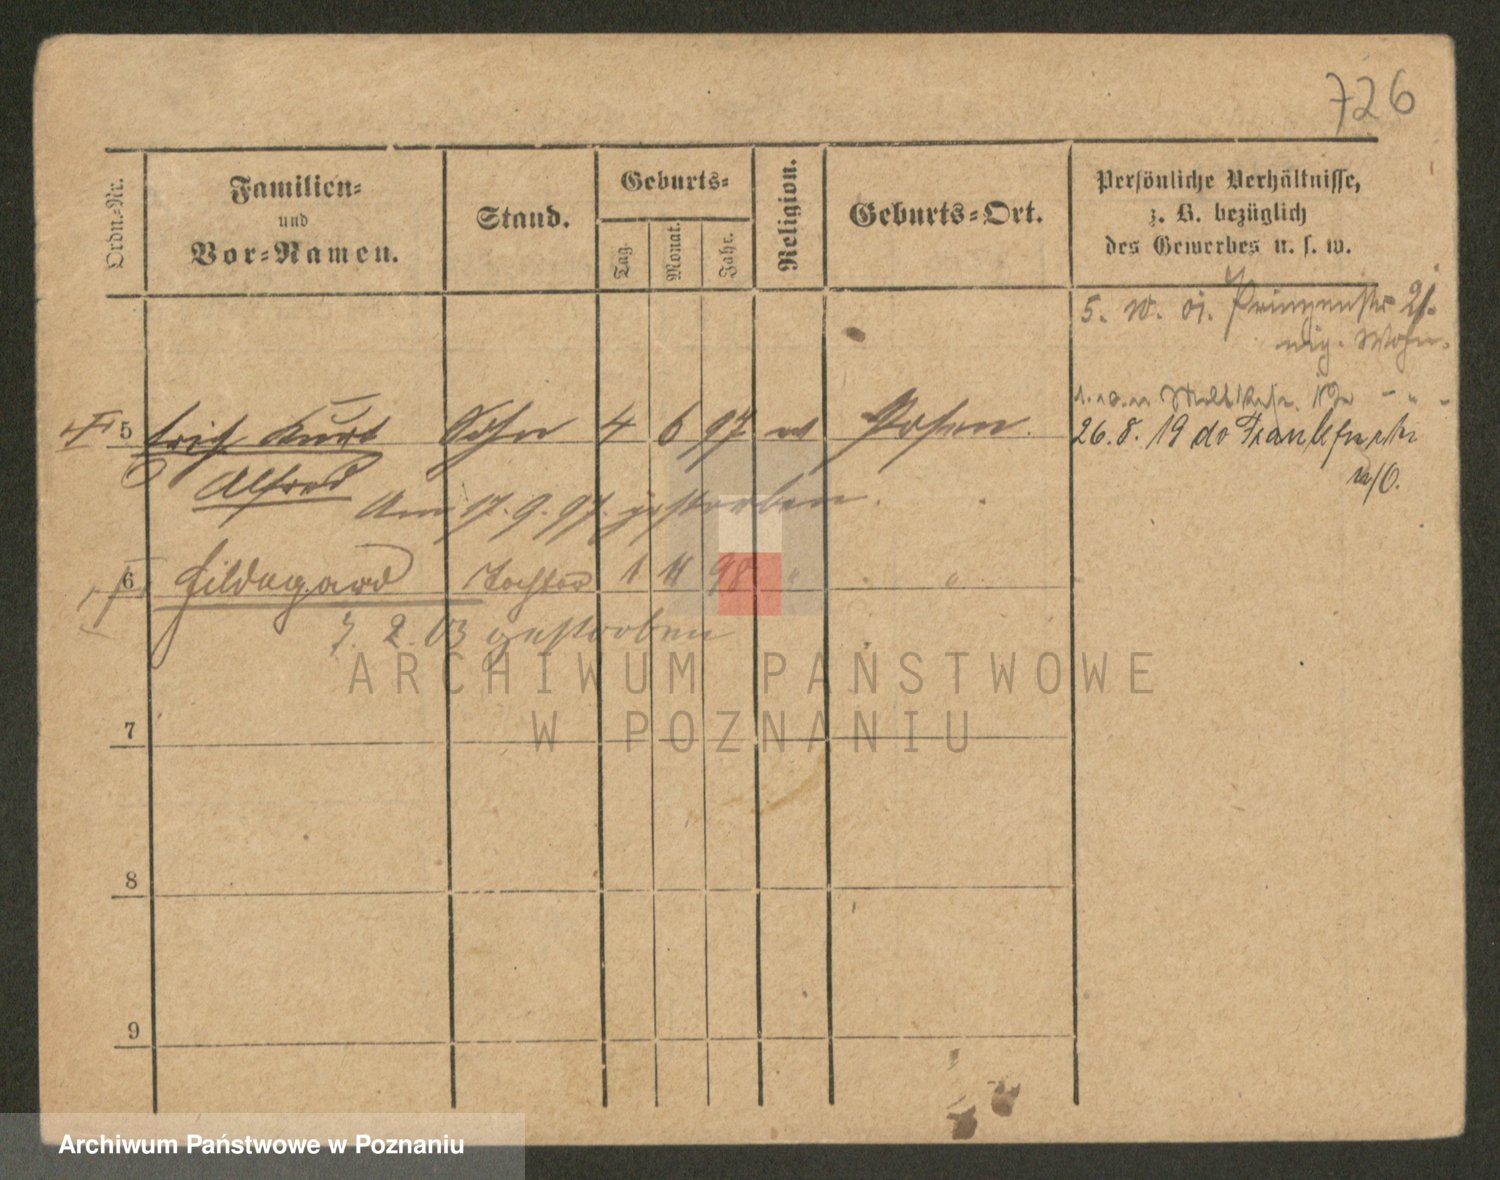 726
Ordn.-Nr.
Familien-
und
Vor-Namen.
Stand.
Geburts-
Tag.
Monat.
Jahr.
Religion.
Geburts-Ort.
Persönliche Verhältnisse,
z. B. bezüglich
des Gewerbes u. s. w.
5. 10. 01. Prinzenstr 21.
Wohn.
5 Erich Kurt Sohn 4 6 97 Posen.
Alfred
Am 17. 9. 97. gestorben.
26. 8. 19 do Frankfurt
a/O.
6 Hildegard Tochter 1 11 98 " "
7. 2. 03 gestorben
7
8
9
ARCHIWUM PAŃSTWOWE
W POZNANIU
Archiwum Państwowe w Poznaniu